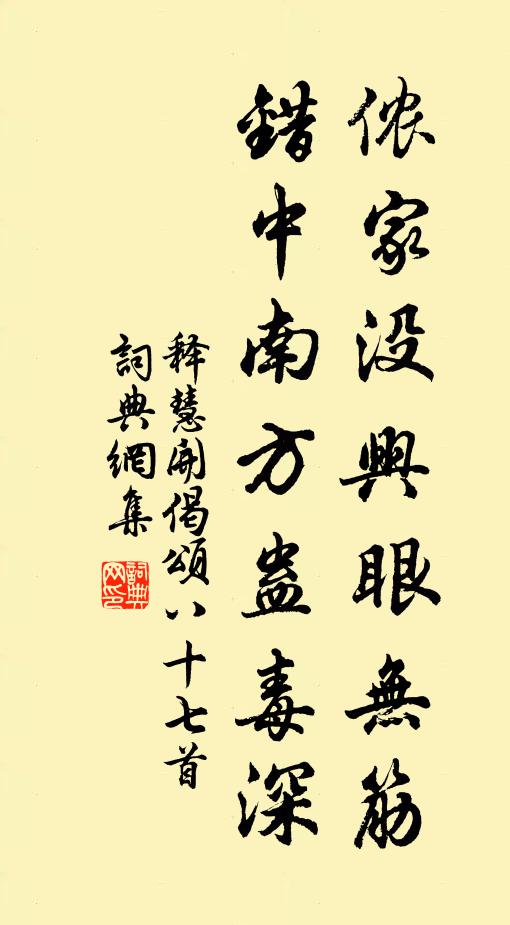 侬家没興眼無筋
錯中南方蛊毒深
释慧開偈頌八十七首
詞典網集
詞典網印